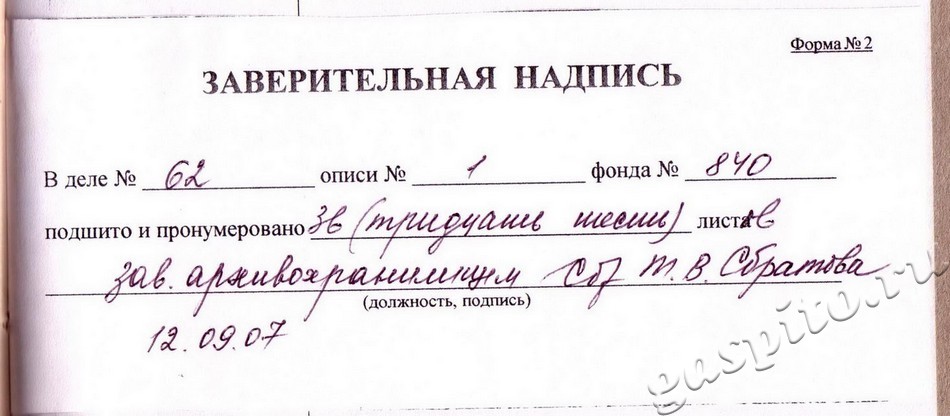 Форма № 2
ЗАВЕРИТЕЛЬНАЯ НАДПИСЬ
В деле № 62 описи № 1 фонда № 840
подшито и пронумеровано 36 (тридцать шесть) листов
зав. архивохранилищем Т. В. Сбратова
(должность, подпись)
12.09.07
gaspito.ru